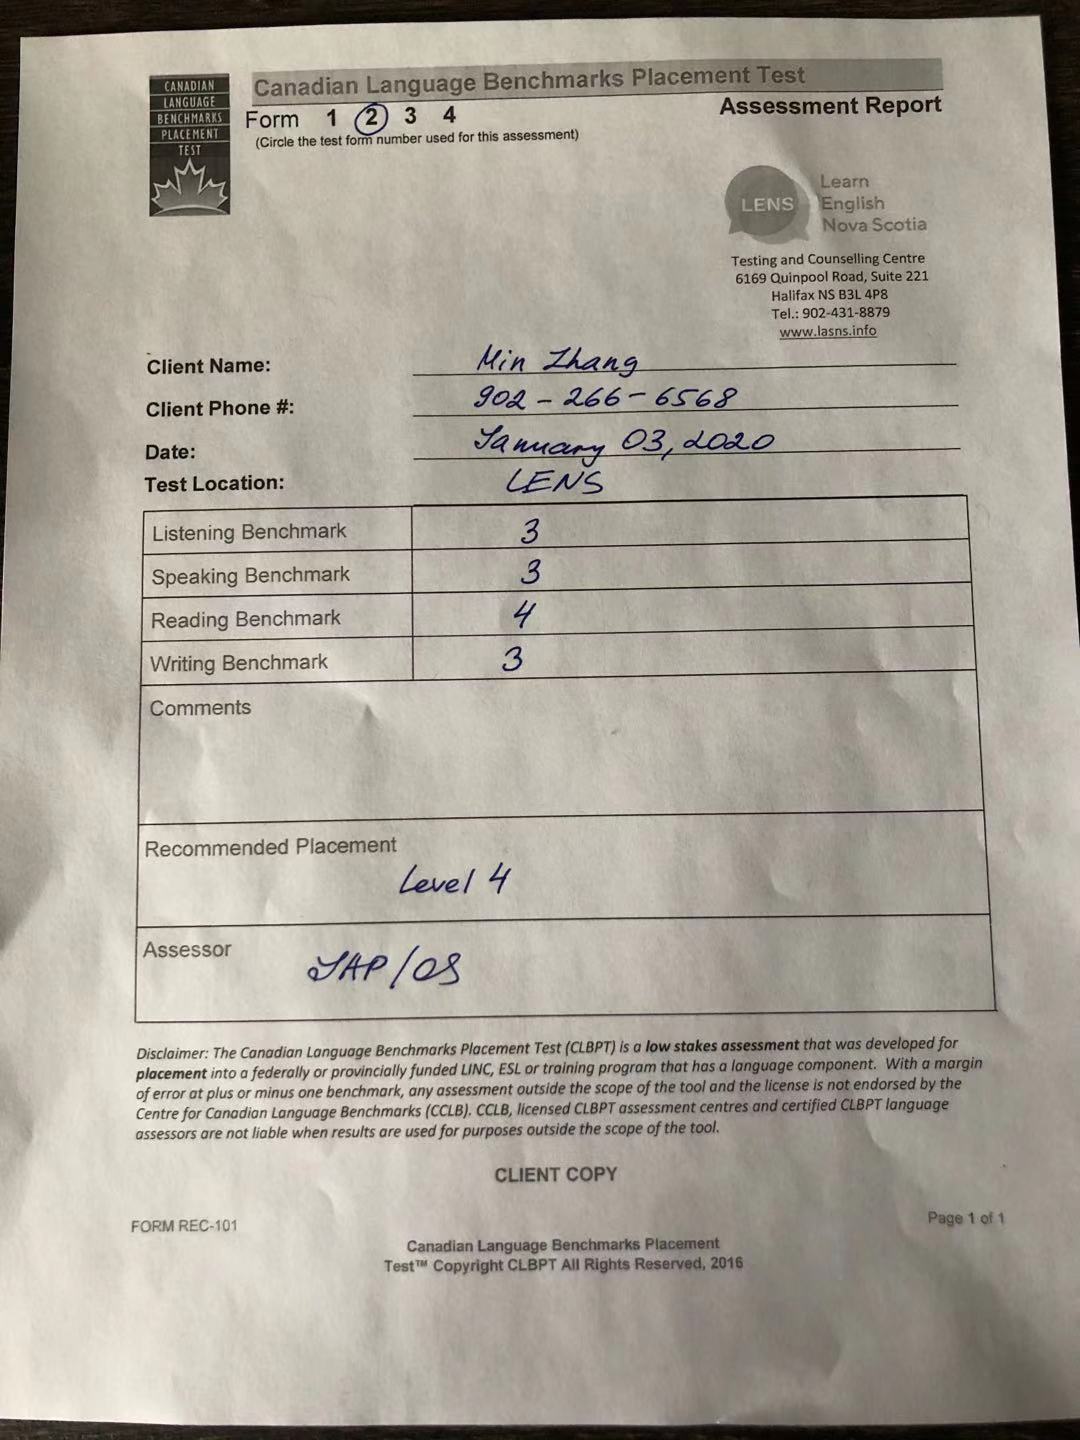 CANADIAN
LANGUAGE
BENCHMARKS
PLACEMENT
TEST
Canadian Language Benchmarks Placement Test
Assessment Report
Form 1 2 3 4
(Circle the test form number used for this assessment)
LENS
Learn
English
Nova Scotia
Testing and Counselling Centre
6169 Quinpool Road, Suite 221
Halifax NS B3L 4P8
Tel.: 902-431-8879
www.lasns.info
Client Name: Min Zhang
Client Phone #: 902-266-6568
Date: January 03, 2020
Test Location: LENS
Listening Benchmark 3
Speaking Benchmark 3
Reading Benchmark 4
Writing Benchmark 3
Comments
Recommended Placement
Level 4
Assessor
Disclaimer: The Canadian Language Benchmarks Placement Test (CLBPT) is a low stakes assessment that was developed for
placement into a federally or provincially funded LINC, ESL or training program that has a language component. With a margin
of error at plus or minus one benchmark, any assessment outside the scope of the tool and the license is not endorsed by the
Centre for Canadian Language Benchmarks (CCLB). CCLB, licensed CLBPT assessment centres and certified CLBPT language
assessors are not liable when results are used for purposes outside the scope of the tool.
CLIENT COPY
FORM REC-101
Page 1 of 1
Canadian Language Benchmarks Placement
Test™ Copyright CLBPT All Rights Reserved, 2016